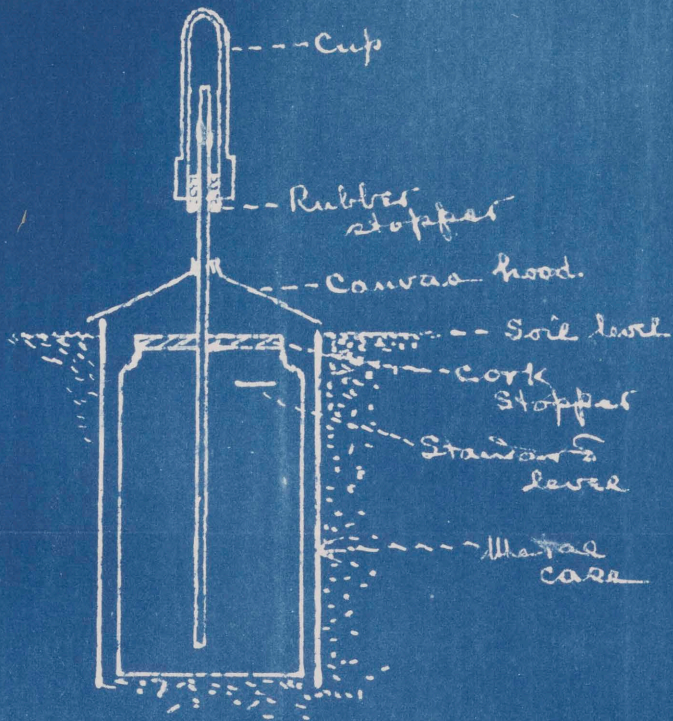 Cup
Rubber
stopper
Canvas hood.
Soil level
Cork
Stopper
Standard
level
Metal
case